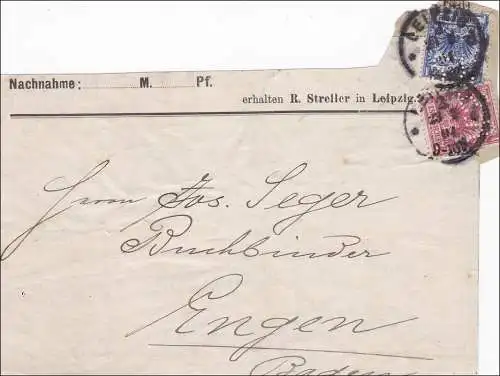 Nachnahme: M. Pf.
erhalten R. Streller in Leipzig.
Herrn Jos. Seger
Buchbinder
Engen
Baden